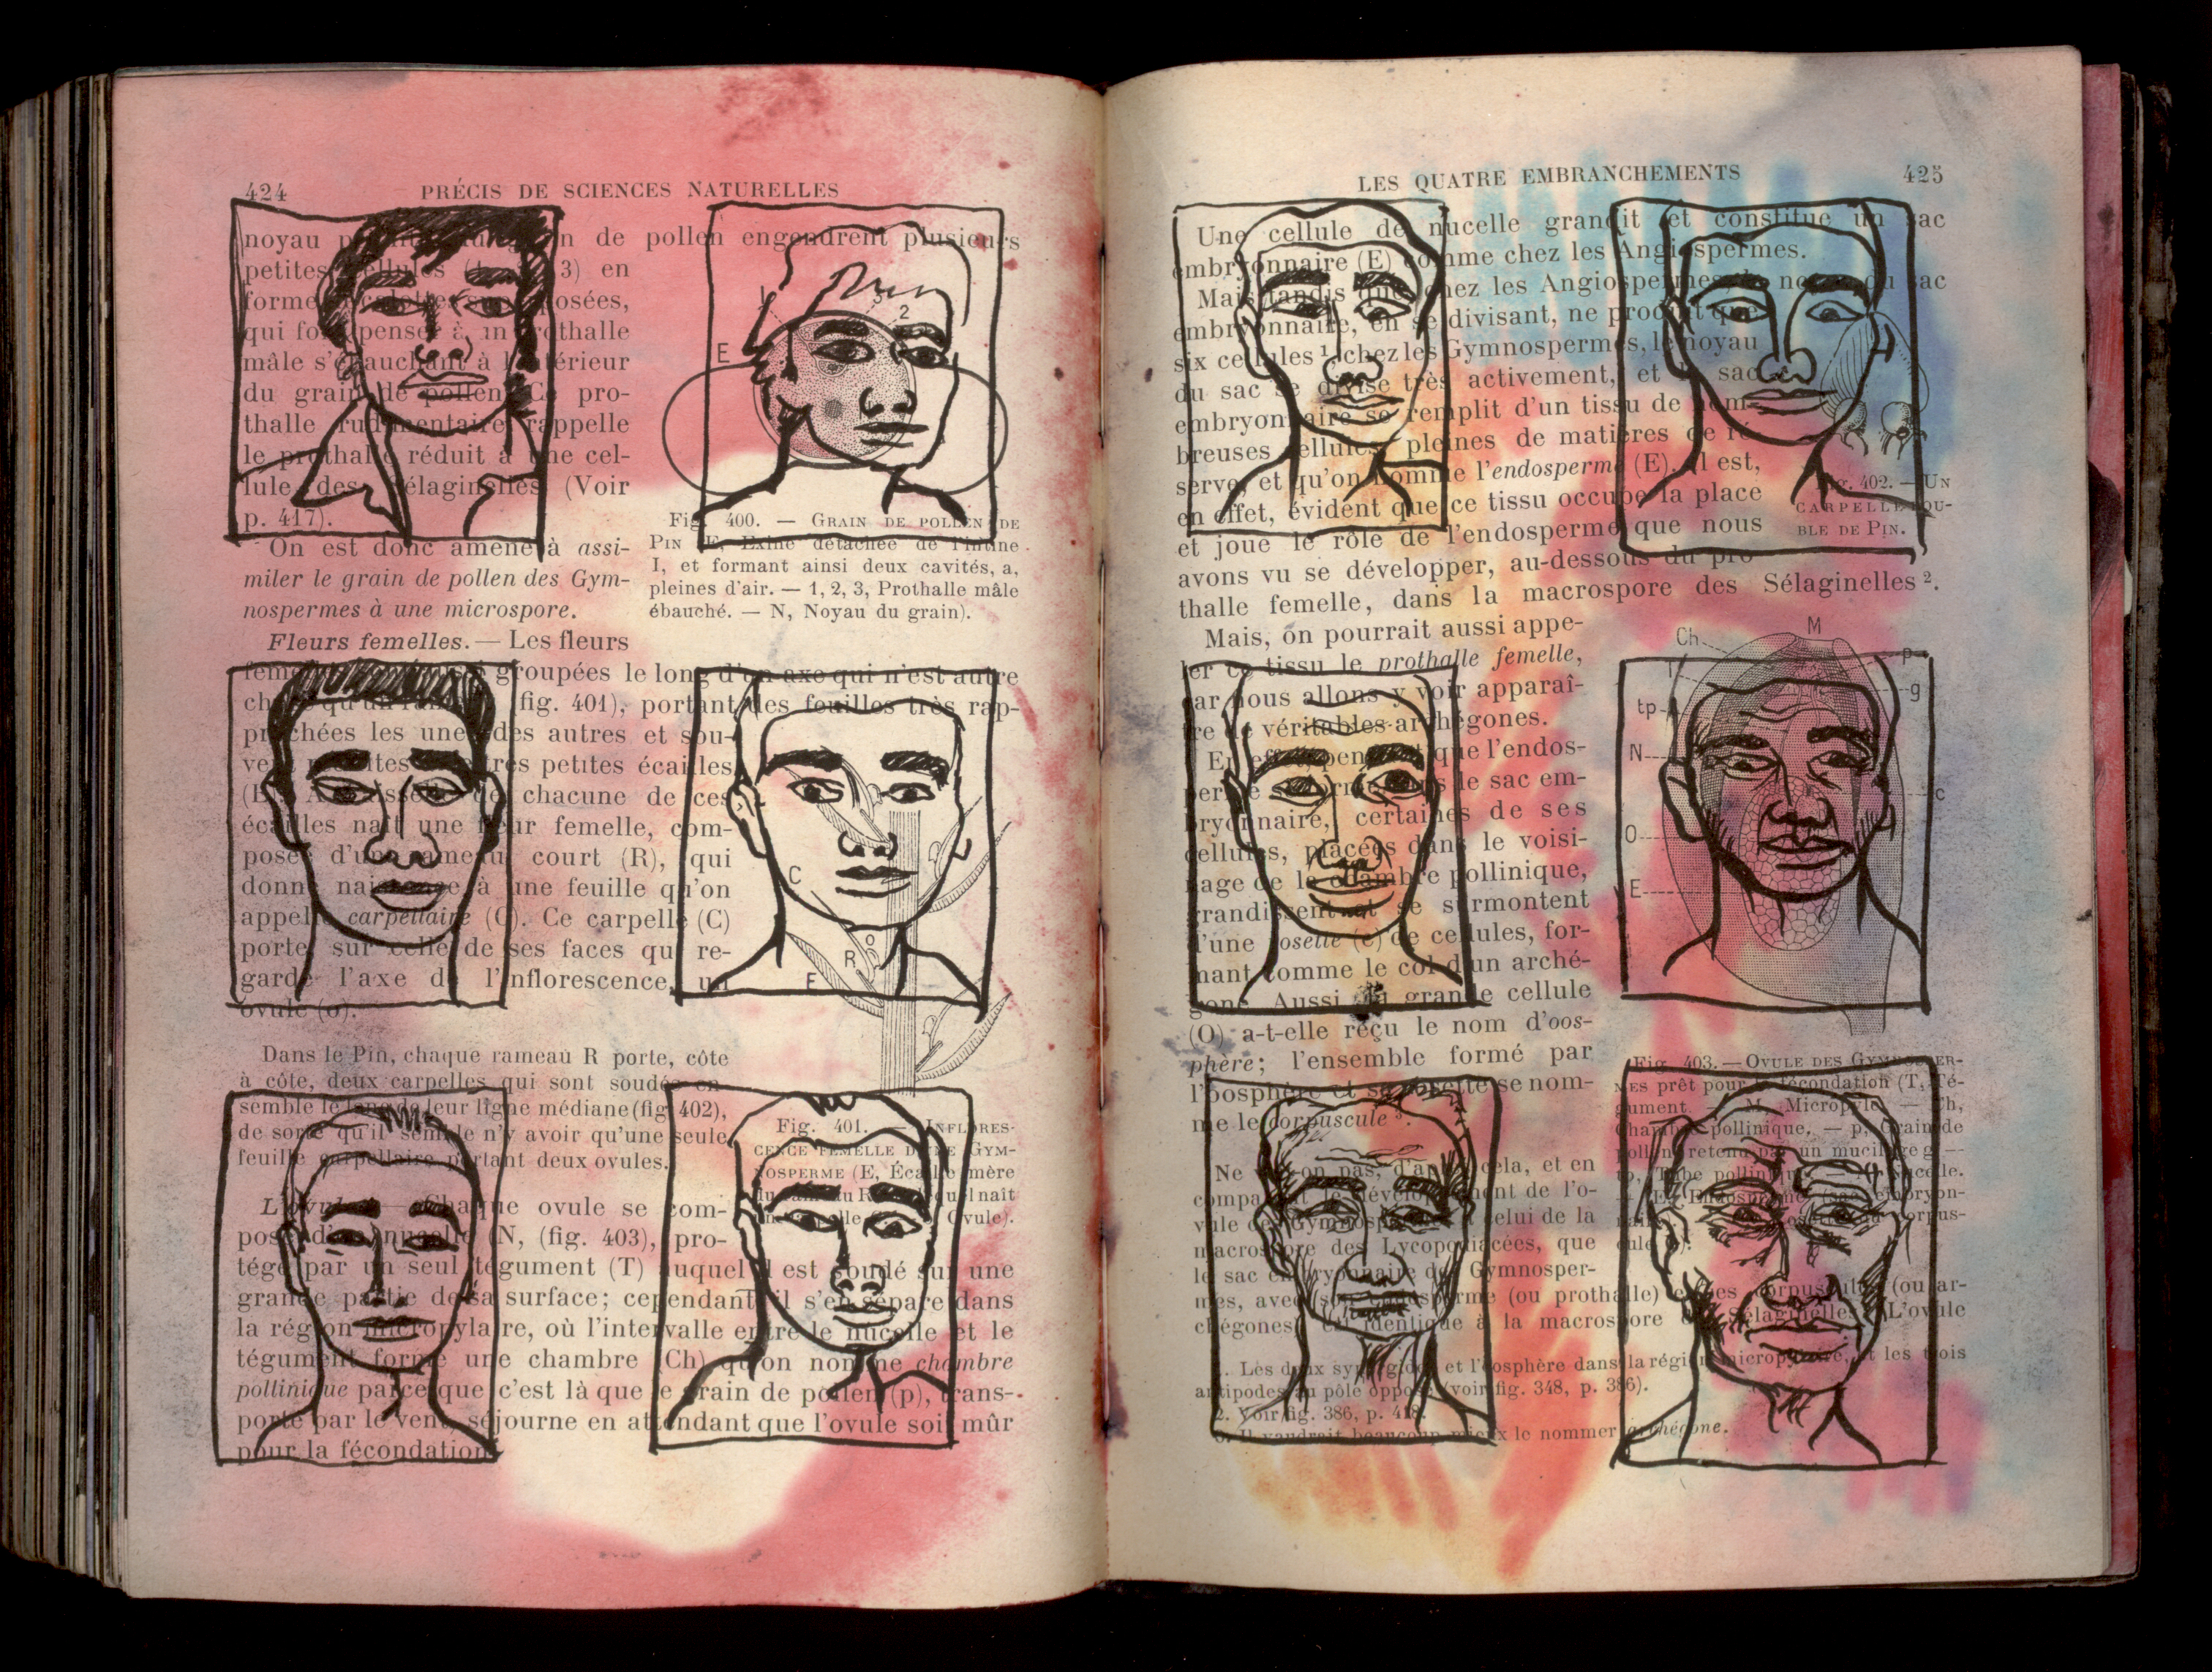 424 PRÉCIS DE SCIENCES NATURELLES
noyau de pollen engendrent plusieurs
petites cellules 3) en
forme calottes superposées,
qui font penser à un prothalle
mâle s'ébauchant à l'intérieur
du grain de pollen. Ce pro-
thalle rudimentaire rappelle
le prothalle réduit à une cel-
lule des Sélaginelles (Voir
p. 417).
On est donc amené à assi-
miler le grain de pollen des Gym-
nospermes à une microspore.
E
I
3
2
Fig. 400. — GRAIN DE POLLEN DE
PIN E, Exine détachée de l'intine
I, et formant ainsi deux cavités, a,
pleines d'air. — 1, 2, 3, Prothalle mâle
ébauché. — N, Noyau du grain).
Fleurs femelles. — Les fleurs
groupées le long d'un axe qui n'est autre
fig. 401), portant des feuilles très rap-
prochées les unes des autres et sou-
très petites écailles
chacune de ces
écailles naît une fleur femelle, com-
posée d'un rameau court (R), qui
donne naissance à une feuille qu'on
appelle carpellaire (C). Ce carpelle (C)
porte sur celle de ses faces qui re-
garde l'axe de l'inflorescence, un
ovule (o).
C
O
R
E
Dans le Pin, chaque rameau R porte, côte
à côte, deux carpelles qui sont soudés en-
semble le long de leur ligne médiane (fig. 402),
de sorte qu'il semble n'y avoir qu'une seule
feuille carpellaire portant deux ovules.
Fig. 401. — INFLORES-
CENCE FEMELLE D'UNE GYM-
NOSPERME (E, Écaille mère
du rameau R naît
Ovule).
L'ovule — Chaque ovule se com-
pose d'un nucelle (N, (fig. 403), pro-
tégé par un seul tégument (T) auquel il est soudé sur une
grande partie de sa surface; cependant il s'en sépare dans
la région micropylaire, où l'intervalle entre le nucelle et le
tégument forme une chambre (Ch) qu'on nomme chambre
pollinique parce que c'est là que le grain de pollen (p), trans-
porté par le vent, séjourne en attendant que l'ovule soit mûr
pour la fécondation.
LES QUATRE EMBRANCHEMENTS 425
Une cellule de nucelle grandit et constitue un sac
embryonnaire (E) comme chez les Angiospermes.
Mais tandis que chez les Angiospermes, le noyau du sac
embryonnaire, en se divisant, ne produit que
six cellules 1, chez les Gymnospermes, le noyau
du sac se divise très activement, et le sac
embryonnaire se remplit d'un tissu de nom-
breuses cellules pleines de matières de ré-
serve, et qu'on nomme l'endosperme (E). Il est,
en effet, évident que ce tissu occupe la place
et joue le rôle de l'endosperme que nous
avons vu se développer, au-dessous du pro-
thalle femelle, dans la macrospore des Sélaginelles 2.
Fig. 402. — UN
CARPELLE DOU-
BLE DE PIN.
Mais, on pourrait aussi appe-
ler ce tissu le prothalle femelle,
car nous allons y voir apparaî-
tre de véritables archégones.
En effet, pendant que l'endos-
perme se forme dans le sac em-
bryonnaire, certaines de ses
cellules, placées dans le voisi-
nage de la chambre pollinique,
grandissent et se surmontent
d'une rosette (c) de cellules, for-
mant comme le col d'un arché-
gone. Aussi la grande cellule
(O) a-t-elle reçu le nom d'oos-
phère; l'ensemble formé par
l'oosphère et sa rosette se nom-
me le corpuscule 3.
Ch
M
T
p
g
tp
N
c
O
E
Fig. 403. — OVULE DES GYMNOSPER-
MES prêt pour la fécondation (T, Té-
gument. — M, Micropyle. — Ch,
Chambre pollinique. — p, Grain de
pollen retenu par un mucilage g —
tp, Tube pollinique. — Nucelle.
— E, Endosperme (sac embryon-
naire corpus-
cule
Ne on pas, d'après cela, et en
comparant le développement de l'o-
vule des Gymnospermes à celui de la
macrospore des Lycopodiacées, que
le sac embryonnaire des Gymnosper-
mes, avec (son endosperme (ou prothalle) et ses corpuscules (ou ar-
chégones) est identique à la macrospore des Sélaginelles. L'ovule
1. Les deux synergides et l'oosphère dans la région micropylaire, et les trois
antipodes au pôle opposé (voir fig. 348, p. 386).
2. Voir fig. 386, p. 418.
3. Il vaudrait beaucoup mieux le nommer archégone.